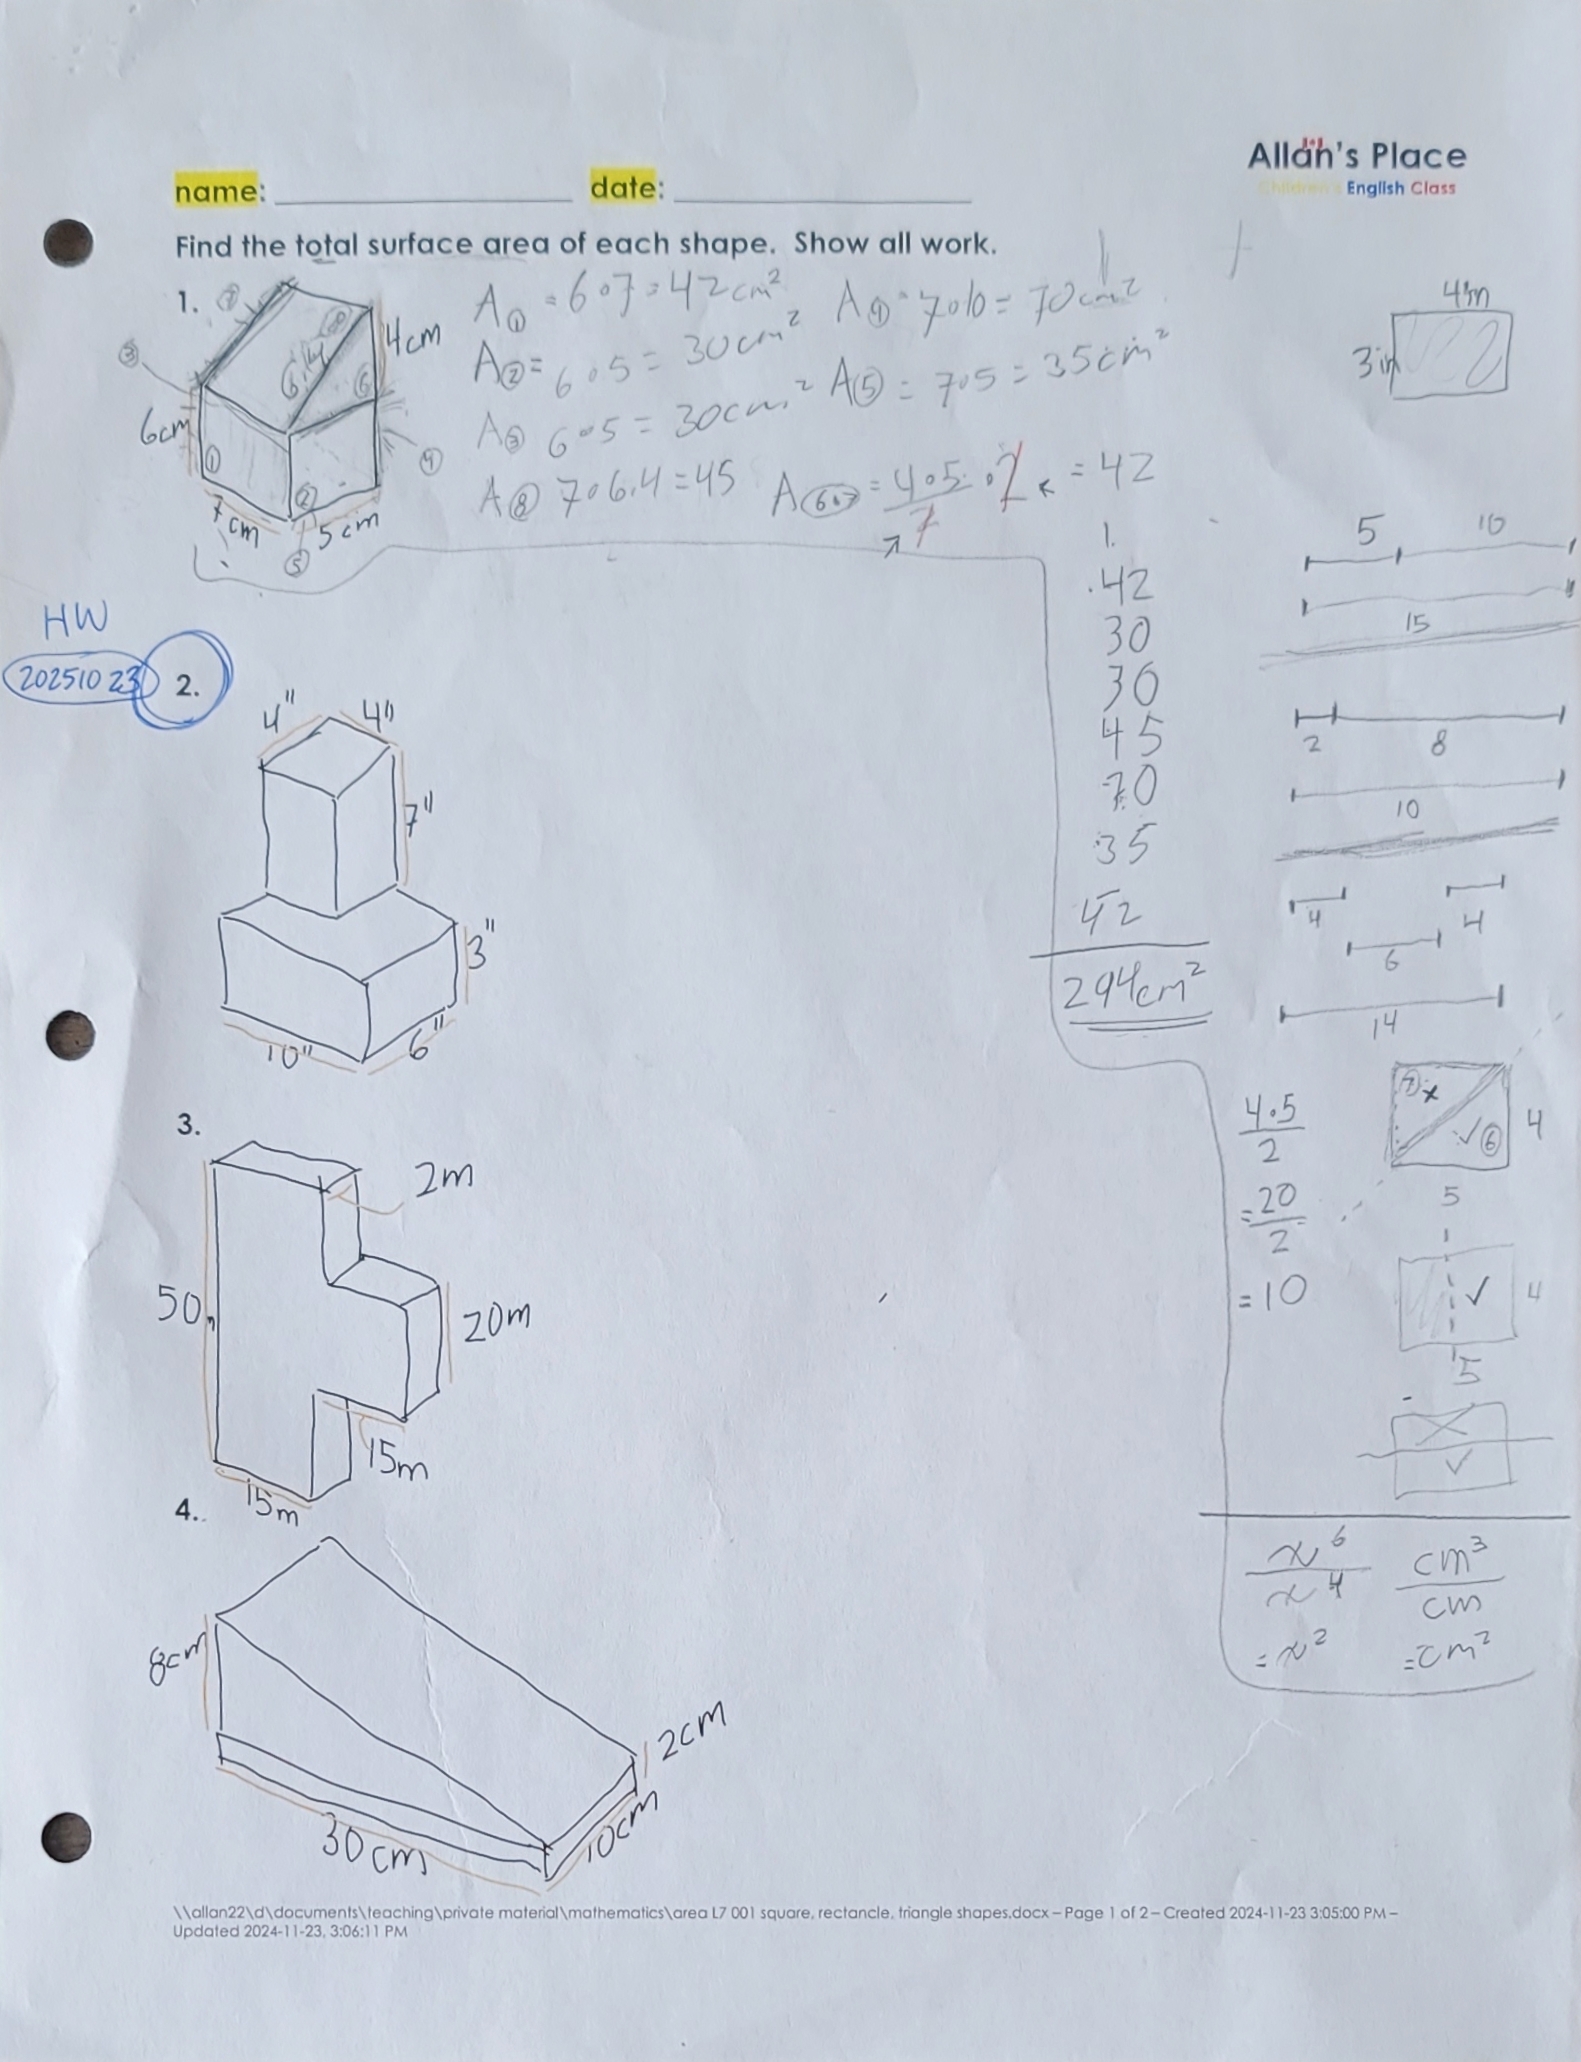 Allan's Place
Children's English Class
name: date:
Find the total surface area of each shape. Show all work.
1.
4cm
6cm
7cm
5cm
6.4
A① = 6•7 = 42cm²
A④ = 7•10 = 70cm²
A② = 6•5 = 30cm²
A⑤ = 7•5 = 35cm²
A③ 6•5 = 30cm²
A⑧ 7•6.4 = 45
A = 4•5/2 •2 = 42
4in
3in
1.
42
30
30
45
70
35
42
294cm²
5 10
15
2 8
10
4 4
6
14
4•5/2
= 20/2
= 10
⑦ x
✓ ⑥
4
5
✓ 4
5
x
✓
x⁶/x⁴
= x²
cm³/cm
= cm²
HW
20251023
2.
4" 4"
7"
3"
10" 6"
3.
2m
50m
20m
15m
15m
4.
8cm
2cm
30cm
10cm
\\allan22\d\documents\teaching\private material\mathematics\area L7 001 square, rectancle, triangle shapes.docx – Page 1 of 2 – Created 2024-11-23 3:05:00 PM –
Updated 2024-11-23, 3:06:11 PM